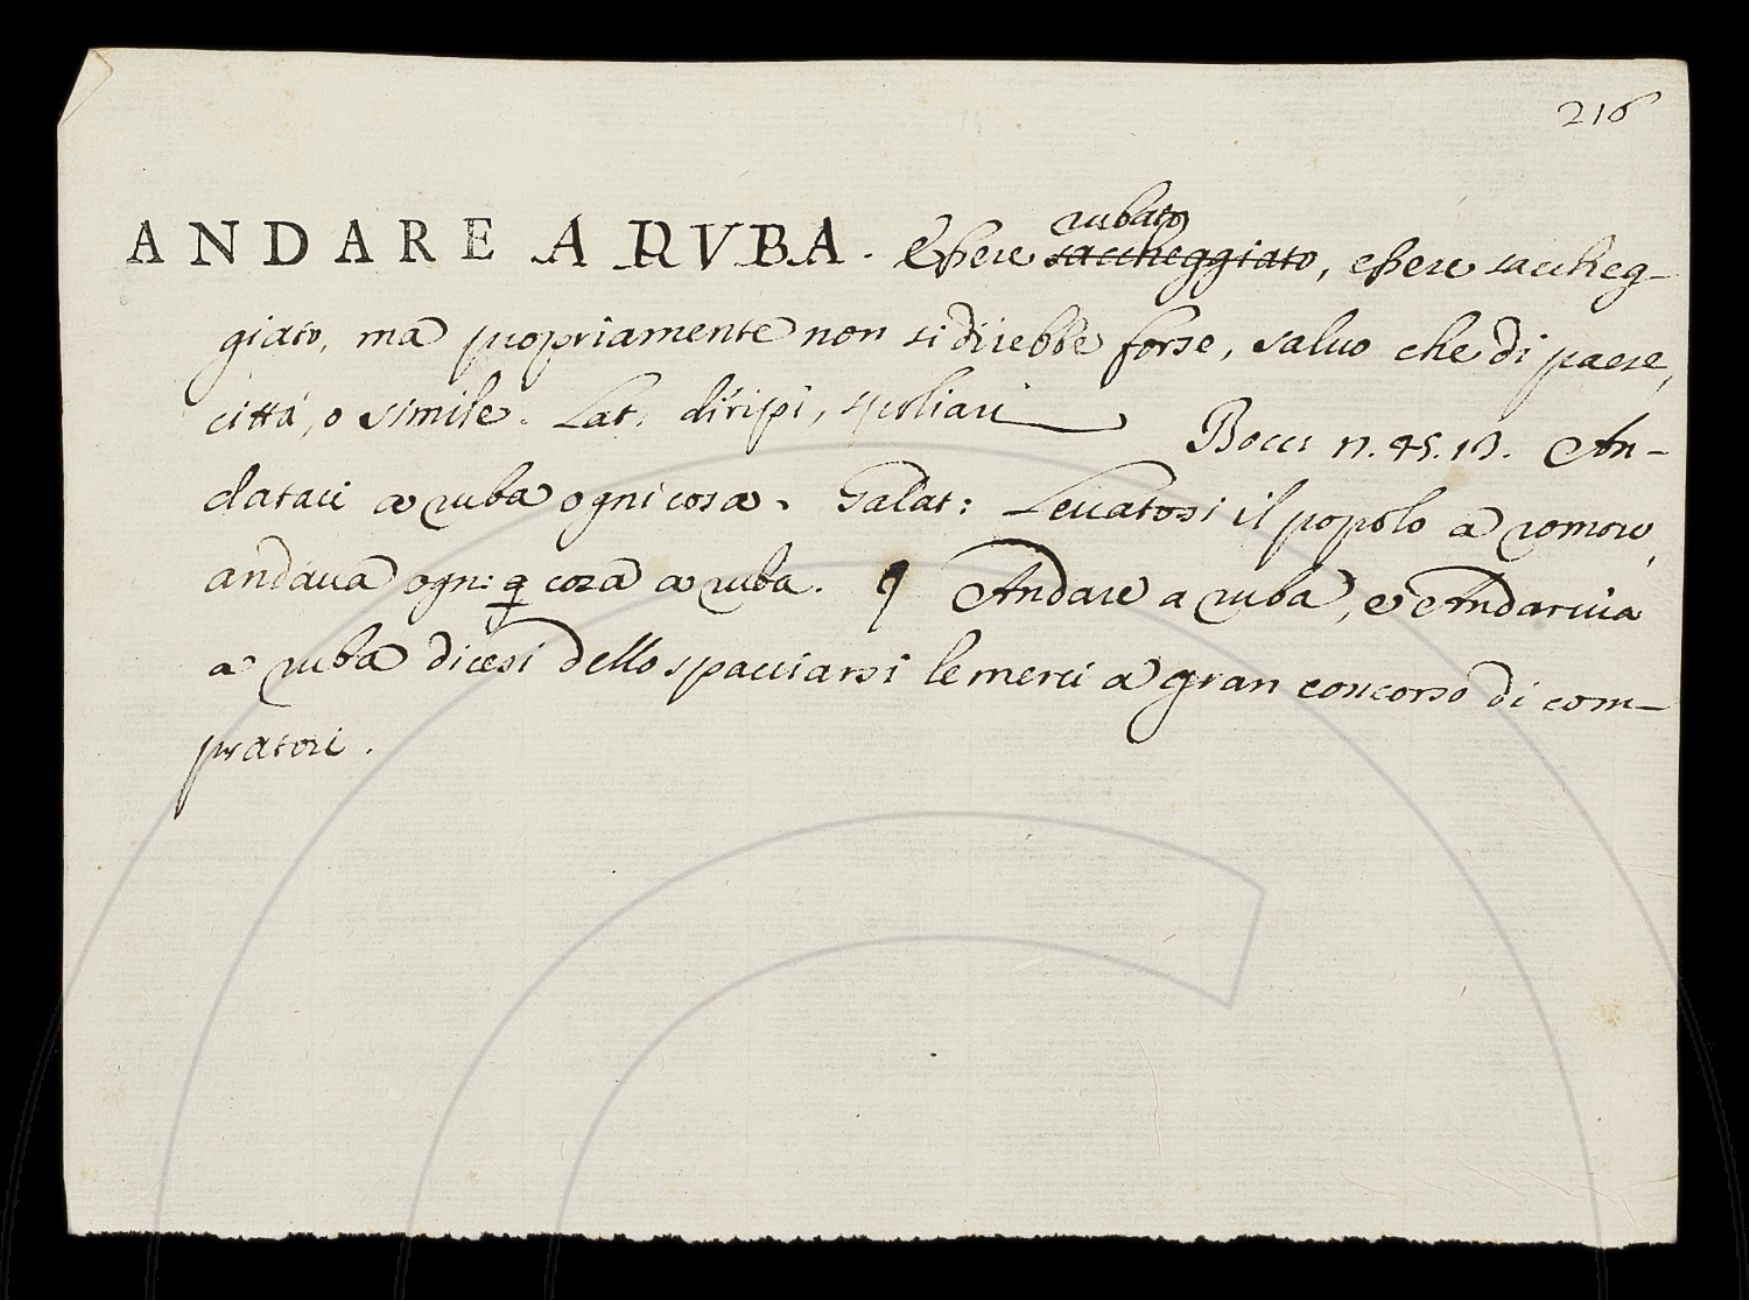 216
rubato
ANDARE A RVBA. Essere saccheggiato, essere saccheg-
giato, ma propriamente non si direbbe forse, saluo che di paese,
città, o simile. Lat. diripi, spoliari Bocc. n. 45. 13. An-
dataci a ruba ogni cosa. Galat: Leuatosi il popolo a romore,
andaua ogni cosa a ruba. ¶ Andare a ruba, e Andaruia
a ruba dicesi dello spacciarsi le merci a gran concorso di com-
pratori.